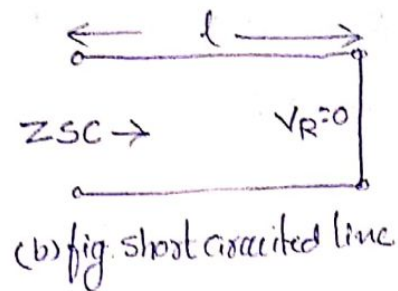 l
ZSC →
VR=0
(b) fig. short circuited line